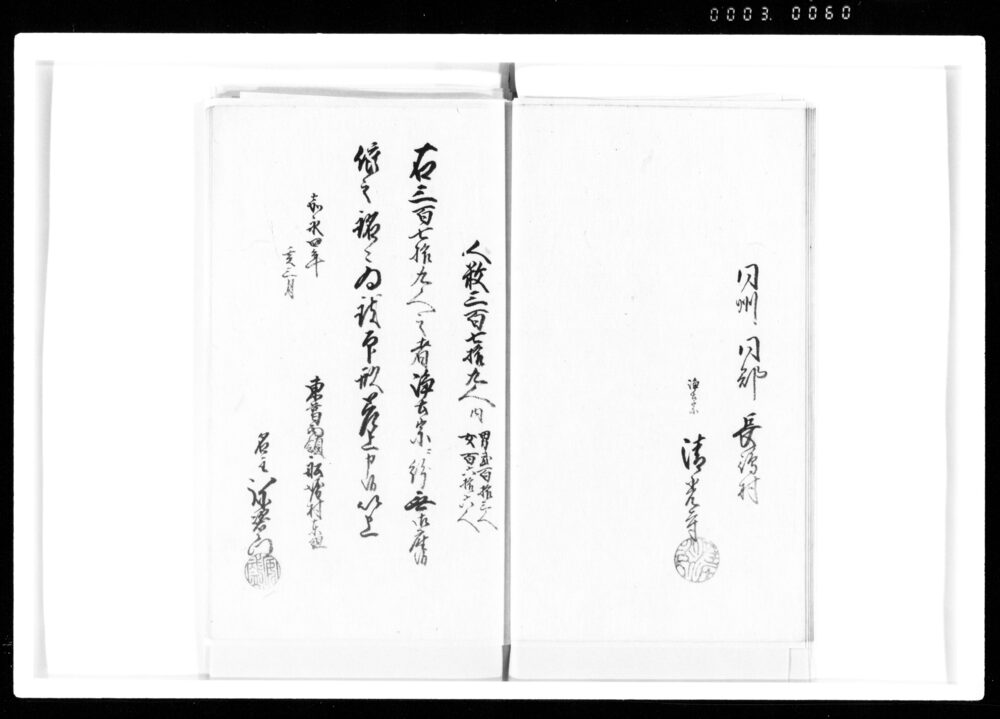 0003. 0060
同州 同郡 長嶋村
浄土宗
清光寺
人数三百七拾九人 内
男弐百拾三人
女百六拾六人
右三百七拾九人之者浄土宗ニ紛無御座候
依之 為 印形差上申候以上
嘉永四年
亥三月
東葛西領 村
名主